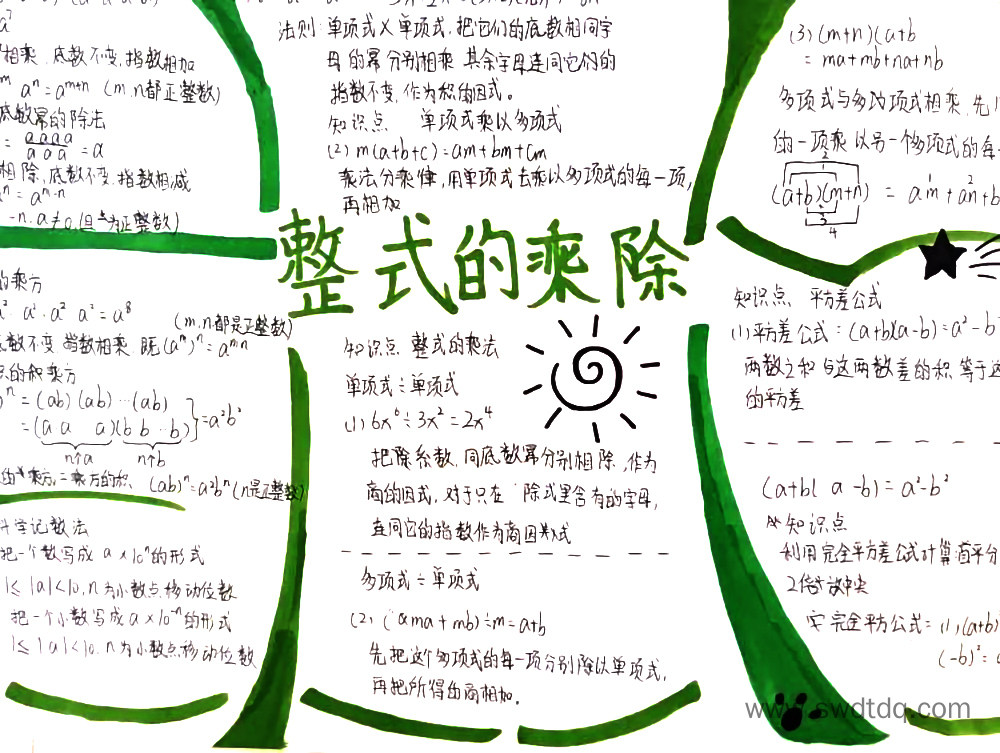 相乘,底数不变,指数相加
aⁿ=aᵐ⁺ⁿ (m.n都正整数)
底数幂的除法
= aaaa/aaa = a
相除,底数不变,指数相减
-n.a≠0,(且 为正整数)
法则:单项式乂单项式,把它们的底数相同字
母的幂分别相乘 其余字母连同它们的
指数不变,作为积的因式。
知识点 单项式乘以多项式
(2) m(a+b+c)=am+bm+cm
乘法分乘律,用单项式去乘以多项式的每一项,
再相加
(3)(m+n)(a+b
= ma+mb+na+nb
多项式与多项式相乘,先
的一项乘以另一个多项式的每一
(a+b)(m+n) = am+an+b
整式的乘除
的乘方
a²·a²·a² a²=a⁸
(m.n都是正整数)
数不变,指数相乘,既(aᵐ)ⁿ=aᵐⁿ
的积乘方
=(ab)(ab)…(ab)
=(a a a)(b b…b) }=a²b²
n个a n个b
(ab)ⁿ=a²bⁿ(n是正整数)
科学记数法
把一个数写成a×10ⁿ的形式
1≤|a|<10,n为小数点移动位数
把一个小数写成a×10⁻ⁿ的形式
1≤|a|<10.n为小数点移动位数
知识点 整式的乘法
单项式÷单项式
(1)6x⁶÷3x²=2x⁴
把除系数,同底数幂分别相除,作为
商的因式,对于只在 除式里含有的字母,
连同它的指数作为商因式
多项式÷单项式
(2) (ama+mb)÷m=a+b
先把这个多项式的每一项分别除以单项式,
再把所得的商相加。
知识点 平方差公式
(1)平方差公式:(a+b)(a-b)=a²-b
两数之和与这两数差的积,等于这
的平方差
(a+b( a-b)=a²-b²
知识点
利用完全平方差公式计算:首平分
2倍放中央
完全平方公式=(1)(a+b)
(-b)²=
www.swdtdq.com